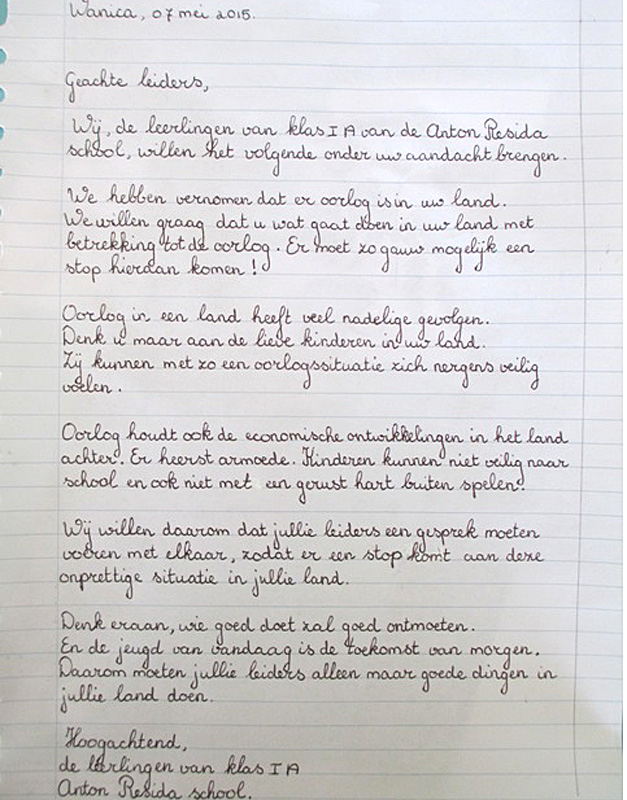 Wanica, 07 mei 2015.
Geachte leiders,
Wij, de leerlingen van klas I A van de Anton Resida
school, willen het volgende onder uw aandacht brengen.
We hebben vernomen dat er oorlog is in uw land.
We willen graag dat u wat gaat doen in uw land met
betrekking tot de oorlog. Er moet zo gauw mogelijk een
stop hierdan komen!
Oorlog in een land heeft veel nadelige gevolgen.
Denk u maar aan de lieve kinderen in uw land.
Zij kunnen met zo een oorlogssituatie zich nergens veilig
voelen.
Oorlog houdt ook de economische ontwikkelingen in het land
achter. Er heerst armoede. Kinderen kunnen niet veilig naar
school en ook niet met een gerust hart buiten spelen!
Wij willen daarom dat jullie leiders een gesprek moeten
voeren met elkaar, zodat er een stop komt aan deze
onprettige situatie in jullie land.
Denk eraan, wie goed doet zal goed ontmoeten.
En de jeugd van vandaag is de toekomst van morgen.
Daarom moeten jullie leiders alleen maar goede dingen in
jullie land doen.
Hoogachtend,
de leerlingen van klas I A
Anton Resida school.